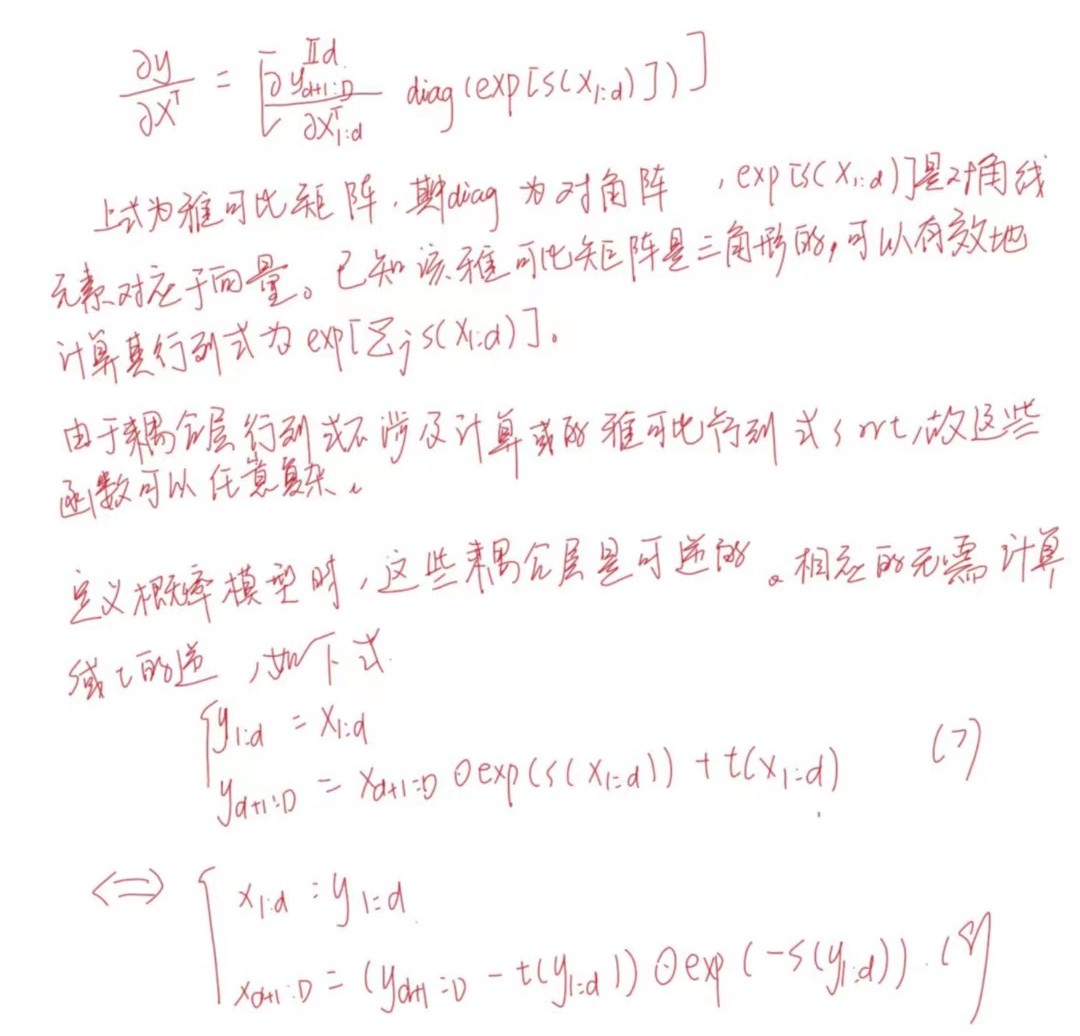 ∂y/∂x^T = [ 𝕀d ∂y_{d+1:D}/∂x^T_{1:d} diag(exp[s(x_{1:d})]) ]
上式为雅可比矩阵，其中diag 为对角阵 ，exp[s(x_{1:d})]是对角线
元素对应于向量。已知该雅可比矩阵是三角形的，可以有效地
计算其行列式为 exp[Σ_j s(x_{1:d})]。
由于耦合层行列式不涉及计算或的雅可比行列式 s or t，故这些
函数可以任意复杂。
定义概率模型时，这些耦合层是可逆的。相应的无需计算
s或t的逆，如下式
{ y_{1:d} = x_{1:d}
y_{d+1:D} = x_{d+1:D} ⊙ exp(s(x_{1:d})) + t(x_{1:d}) (7)
⇔ { x_{1:d} = y_{1:d}
x_{d+1:D} = (y_{d+1:D} - t(y_{1:d})) ⊙ exp(-s(y_{1:d})). (8)